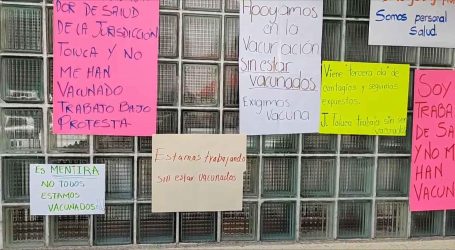 DOR DE SALUD
DE LA JURISDICCION
TOLUCA Y NO
ME HAN
VACUNADO
TRABAJO BAJO
PROTESTA
Es MENTIRA
NO TODOS
ESTAMOS
VACUNADOS
Estamos trabajando
sin estar vacunados
Apoyamos
en la
vacunación
sin estar
vacunados.
Exigimos
Vacuna
Somos personal
Salud.
Viene "tercera ola" de
contagios y seguimos
expuestos.
J. Toluca trabaja sin ser
vacunado
SOY
TRABA
DE SA
Y NO M
HAN
VACUN